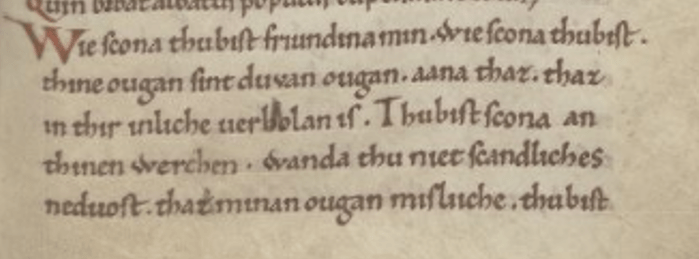 Wie ſcona thubiſt friundina min. wie ſcona thubiſt.
thine ougan ſint duvan ougan. aana thaz. thaz
in thir inliche uerholan iſ. Thubiſt ſcona an
thinen werchen. wanda thu niet ſcandliches
neduoſt. thaz minan ougan miſliiche. thubiſt